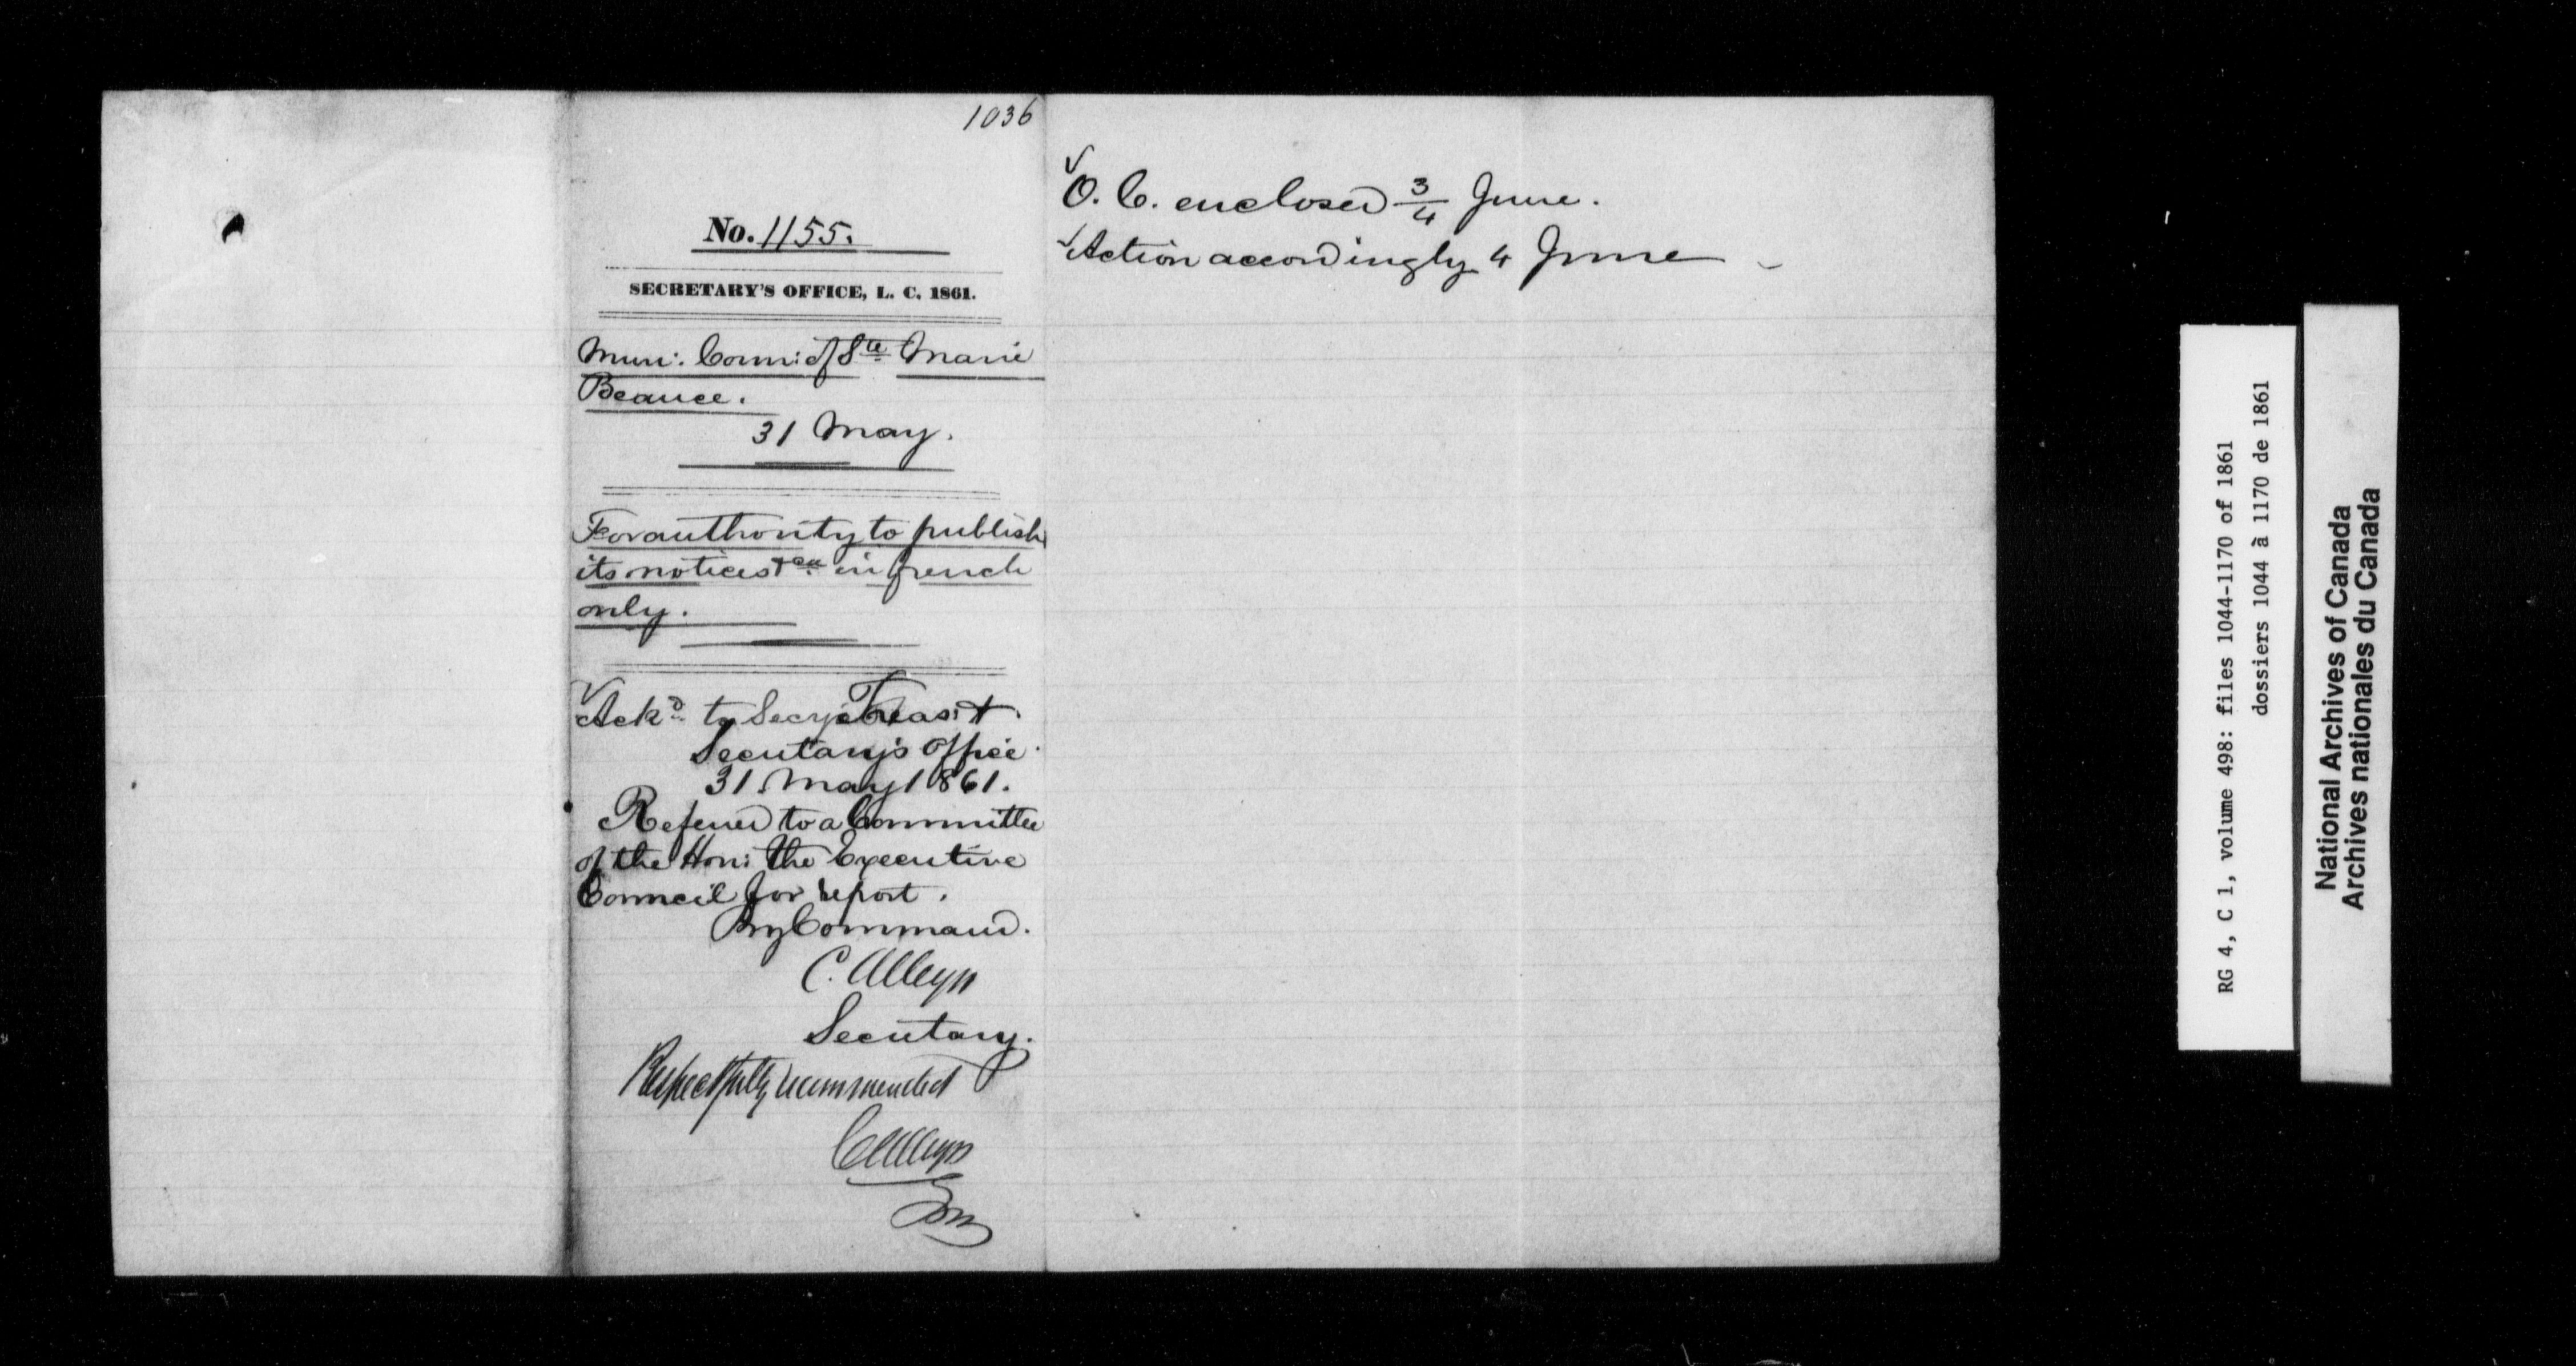 1036
No. 1155.
SECRETARY'S OFFICE, L. C. 1861.
Muni: Coun: of Ste Marie
Beauce.
31 May.
For authority to publish
its notices &ca in french
only.
Ackd to Secy Treas:
Secretary's Office
31 May 1861.
Referred to a Committee
of the Hon: the Executive
Council for report.
By Command.
C. Alleyn
Secretary.
Respectfully recommended
C Alleyn
✓ O. C. enclosed 3/4 June.
✓ Action accordingly 4 June
RG 4, C 1, volume 498: files 1044-1170 of 1861
dossiers 1044 à 1170 de 1861
National Archives of Canada
Archives nationales du Canada